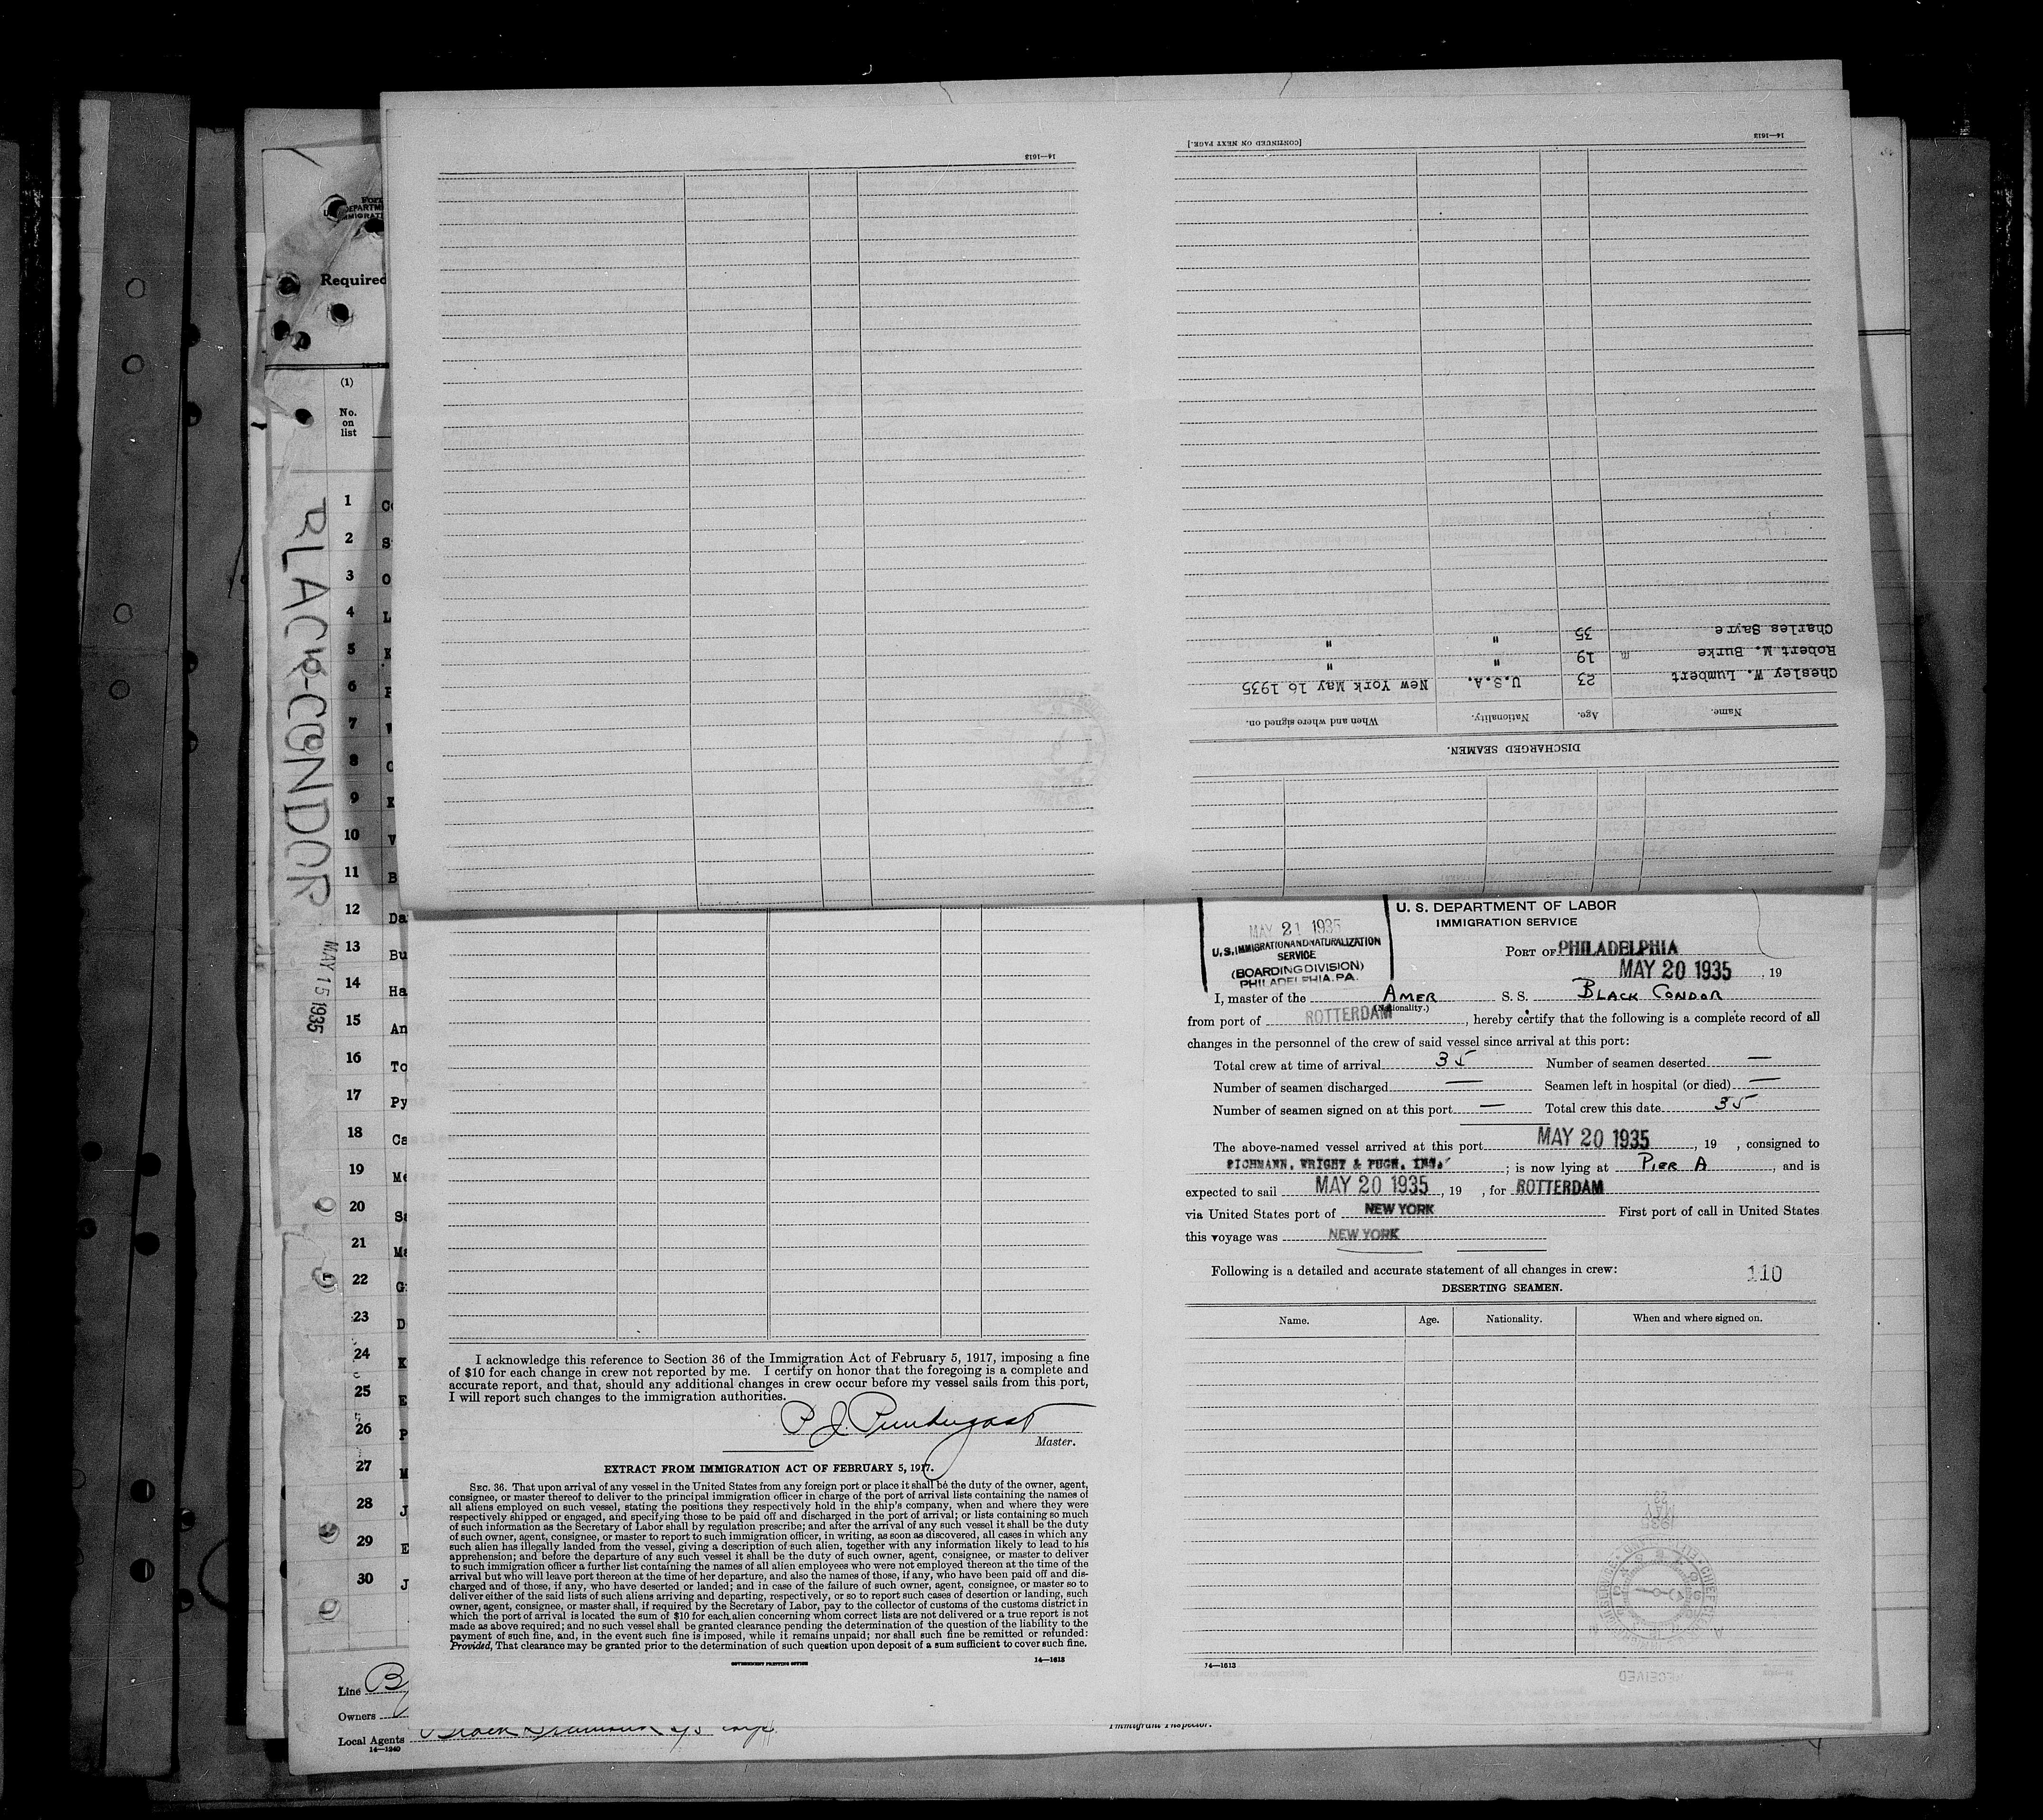 14—1613
[CONTINUED ON NEXT PAGE.]
14—1613
Charles Sayre 35 " "
Robert M. Burke m 19 " "
Chesley W. Lumbert 23 U.S.A. New York May 16 1935
Name. Age. Nationality. When and where signed on.
DISCHARGED SEAMEN.
Required
(1)
No.
on
list
BLACK-CONDOR
MAY 15 1935
1
2 S
3 O
4 L
5 K
6
7
8
9 K
10 V
11 B
12 Da
13 Bu
14 Ha
15 An
16 To
17 Py
18 Ca
19 Me
20 Sa
21 Ma
22 G
23 D
24 K
25 E
26 P
27 M
28 J
29 E
30 J
Line
Owners
Local Agents
14—1240
Immigrant Inspector.
MAY 21 1935
U.S. IMMIGRATION AND NATURALIZATION
SERVICE
(BOARDING DIVISION)
PHILADELPHIA, PA.
U. S. DEPARTMENT OF LABOR
IMMIGRATION SERVICE
PORT OF PHILADELPHIA
MAY 20 1935, 19
I, master of the AMER S. S. BLACK CONDOR
(Nationality.)
from port of ROTTERDAM, hereby certify that the following is a complete record of all
changes in the personnel of the crew of said vessel since arrival at this port:
Total crew at time of arrival 35 Number of seamen deserted —
Number of seamen discharged — Seamen left in hospital (or died) —
Number of seamen signed on at this port — Total crew this date 35
The above-named vessel arrived at this port MAY 20 1935, 19 , consigned to
WRIGHT & PUGH, INC. ; is now lying at PIER A, and is
expected to sail MAY 20 1935, 19 , for ROTTERDAM
via United States port of NEW YORK First port of call in United States
this voyage was NEW YORK
Following is a detailed and accurate statement of all changes in crew:
110
DESERTING SEAMEN.
Name. Age. Nationality. When and where signed on.
14—1613
RECEIVED
I acknowledge this reference to Section 36 of the Immigration Act of February 5, 1917, imposing a fine
of $10 for each change in crew not reported by me. I certify on honor that the foregoing is a complete and
accurate report, and that, should any additional changes in crew occur before my vessel sails from this port,
I will report such changes to the immigration authorities.
P. J. Prendergast
Master.
EXTRACT FROM IMMIGRATION ACT OF FEBRUARY 5, 1917.
SEC. 36. That upon arrival of any vessel in the United States from any foreign port or place it shall be the duty of the owner, agent,
consignee, or master thereof to deliver to the principal immigration officer in charge of the port of arrival lists containing the names of
all aliens employed on such vessel, stating the positions they respectively hold in the ship's company, when and where they were
respectively shipped or engaged, and specifying those to be paid off and discharged in the port of arrival; or lists containing so much
of such information as the Secretary of Labor shall by regulation prescribe; and after the arrival of any such vessel it shall be the duty
of such owner, agent, consignee, or master to report to such immigration officer, in writing, as soon as discovered, all cases in which any
such alien has illegally landed from the vessel, giving a description of such alien, together with any information likely to lead to his
apprehension; and before the departure of any such vessel it shall be the duty of such owner, agent, consignee, or master to deliver
to such immigration officer a further list containing the names of all alien employees who were not employed thereon at the time of the
arrival but who will leave port thereon at the time of her departure, and also the names of those, if any, who have been paid off and dis-
charged and of those, if any, who have deserted or landed; and in case of the failure of such owner, agent, consignee, or master so to
deliver either of the said lists of such aliens arriving and departing, respectively, or so to report such cases of desertion or landing, such
owner, agent, consignee, or master shall, if required by the Secretary of Labor, pay to the collector of customs of the customs district in
which the port of arrival is located the sum of $10 for each alien concerning whom correct lists are not delivered or a true report is not
made as above required; and no such vessel shall be granted clearance pending the determination of the question of the liability to the
payment of such fine, and, in the event such fine is imposed, while it remains unpaid; nor shall such fine be remitted or refunded:
Provided, That clearance may be granted prior to the determination of such question upon deposit of a sum sufficient to cover such fine.
GOVERNMENT PRINTING OFFICE
14—1613